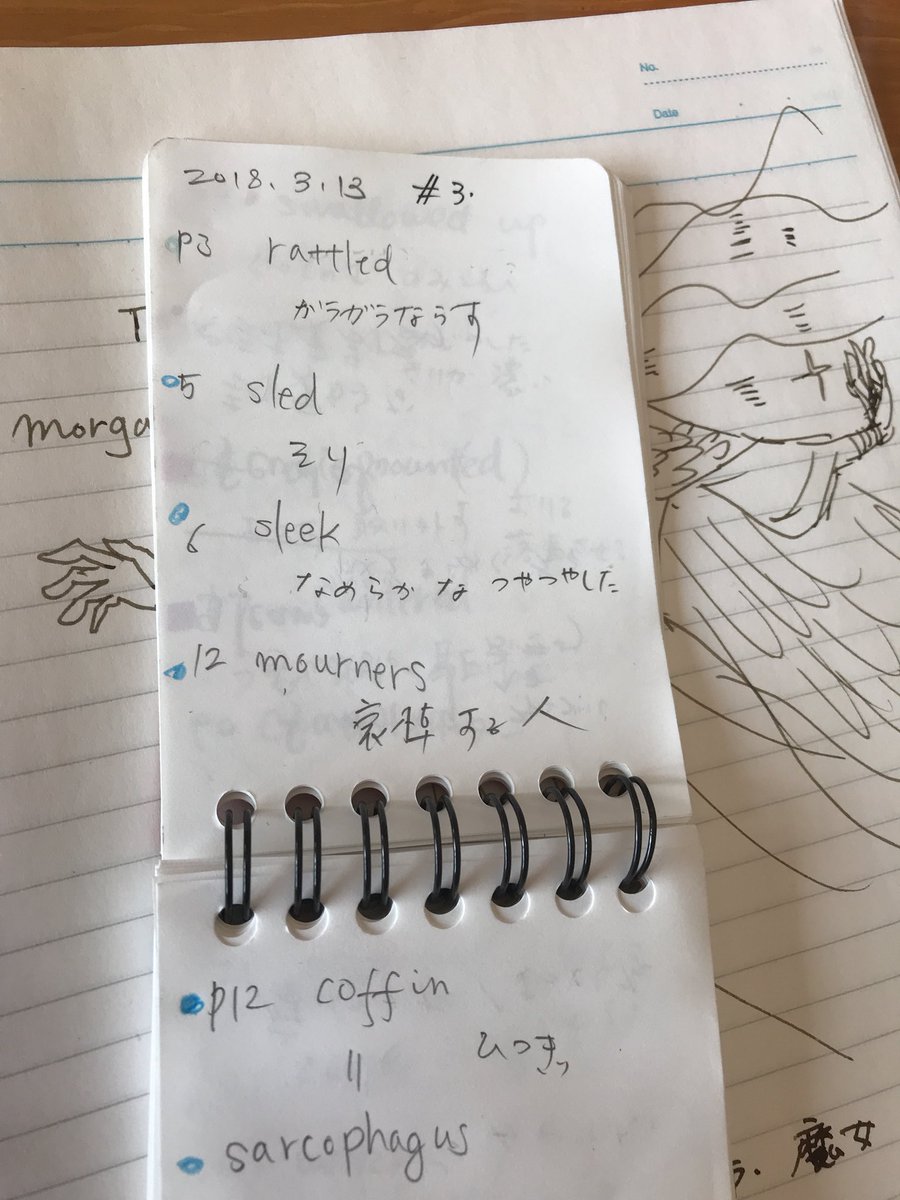 No.
Date
2018.3.13 #3.
p3 rattled
ガラガラならす
5 sled
そり
6 sleek
なめらかな つやつやした
12 mourners
哀悼する人
p12 coffin
ひつぎ
=
sarcophagus
morga
魔女